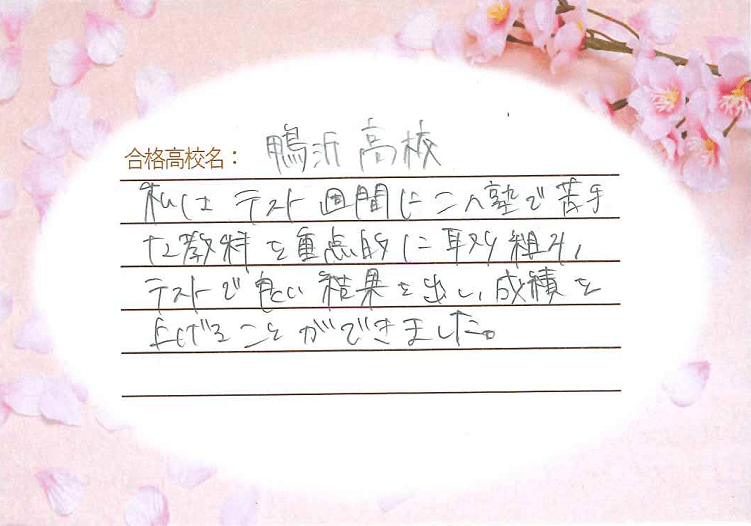 合格高校名： 鴨沂高校
私はテスト週間にこの塾で苦手
な教科を重点的に取り組み、
テストで良い結果を出し、成績を
上げることができました。